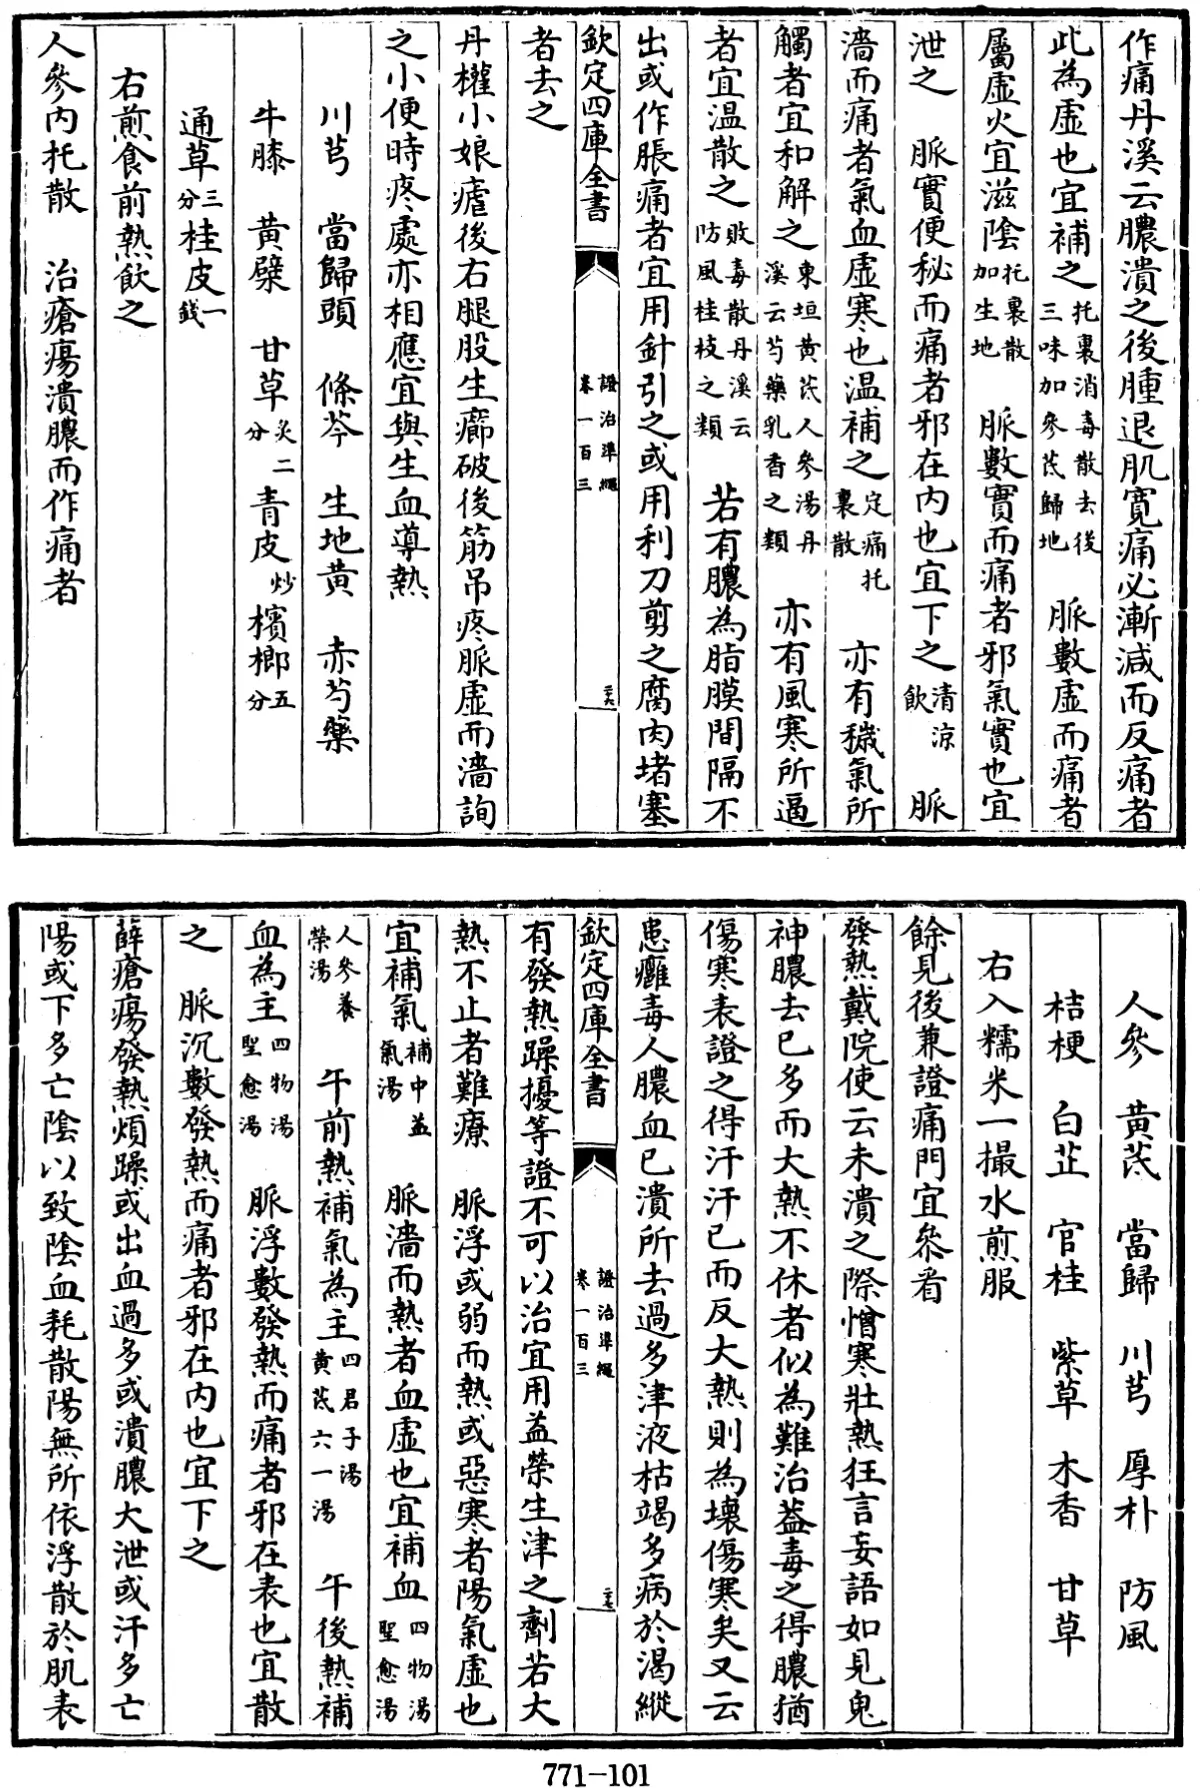 作痛丹溪云膿潰之後腫退肌寬痛必漸減而反痛者
此為虛也宜補之托裏消毒散去後三味加參芪歸地　脈數虛而痛者
屬虛火宜滋陰托裏散加生地　脈數實而痛者邪氣實也宜
泄之　脈實便秘而痛者邪在內也宜下之清涼飲　脈
濇而痛者氣血虛寒也温補之定痛托裏散　亦有穢氣所
觸者宜和解之東垣黃芪人參湯丹溪云芍藥乳香之類　亦有風寒所逼
者宜温散之敗毒散丹溪云防風桂枝之類　若有膿為脂膜間隔不
出或作脹痛者宜用針引之或用利刀剪之腐肉堵塞
欽定四庫全書　證治準繩卷一百三　二六
者去之
丹權小娘瘧後右腿股生癤破後筋吊疼脈虛而濇詢
之小便時疼處亦相應宜與生血導熱
川芎　當歸頭　條芩　生地黃　赤芍藥
牛膝　黃檗　甘草炙二分　青皮炒　檳榔五分
通草三分　桂皮一錢
右煎食前熱飲之
人參內托散　治瘡瘍潰膿而作痛者
人參　黃芪　當歸　川芎　厚朴　防風
桔梗　白芷　官桂　紫草　木香　甘草
右入糯米一撮水煎服
餘見後兼證痛門宜叅看
發熱戴院使云未潰之際憎寒壯熱狂言妄語如見鬼
神膿去已多而大熱不休者似為難治葢毒之得膿猶
傷寒表證之得汗汗已而反大熱則為壞傷寒矣又云
患癰毒人膿血已潰所去過多津液枯竭多病於渴縱
欽定四庫全書　證治準繩卷一百三　二七
有發熱躁擾等證不可以治宜用益榮生津之劑若大
熱不止者難療　脈浮或弱而熱或惡寒者陽氣虛也
宜補氣補中益氣湯　脈濇而熱者血虛也宜補血四物湯聖愈湯
人參養榮湯　午前熱補氣為主四君子湯黃芪六一湯　午後熱補
血為主四物湯聖愈湯　脈浮數發熱而痛者邪在表也宜散
之　脈沉數發熱而痛者邪在內也宜下之
薛瘡瘍發熱煩躁或出血過多或潰膿大泄或汗多亡
陽或下多亡陰以致陰血耗散陽無所依浮散於肌表
771-101